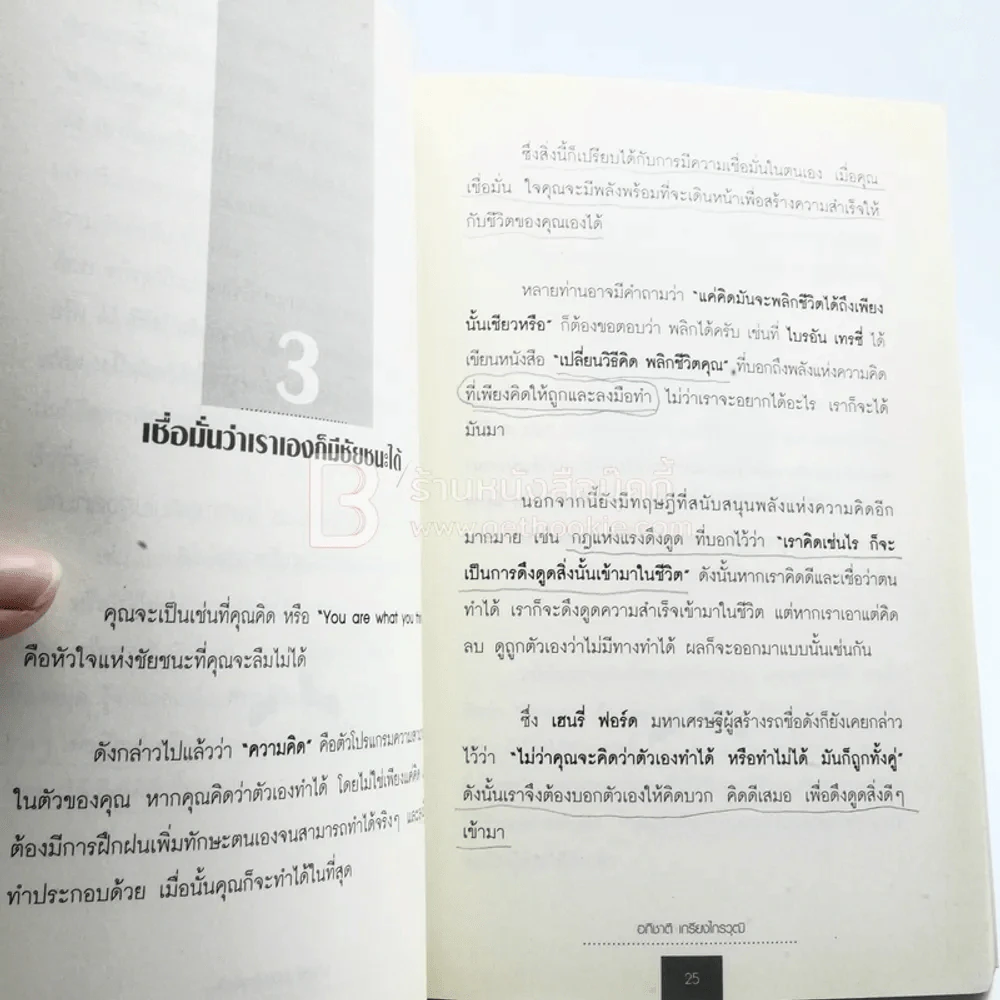 3
เชื่อมั่นว่าเราเองก็มีชัยชนะได้
คุณจะเป็นเช่นที่คุณคิด หรือ "You are what you
คือหัวใจแห่งชัยชนะที่คุณจะลืมไม่ได้
ดังกล่าวไปแล้วว่า "ความคิด" คือตัวโปรแกรม
ในตัวของคุณ หากคุณคิดว่าตัวเองทำได้ โดยไม่ใช่เพียงแค่คิด
ต้องมีการฝึกฝนเพิ่มทักษะตนเองจนสามารถทำได้จริงๆ
ทำประกอบด้วย เมื่อนั้นคุณก็จะทำได้ในที่สุด
ซึ่งสิ่งนี้ก็เปรียบได้กับการมีความเชื่อมั่นในตนเอง เมื่อคุณ
เชื่อมั่น ใจคุณจะมีพลังพร้อมที่จะเดินหน้าเพื่อสร้างความสำเร็จให้
กับชีวิตของคุณเองได้
หลายท่านอาจมีคำถามว่า "แค่คิดมันจะพลิกชีวิตได้ถึงเพียง
นั้นเชียวหรือ" ก็ต้องขอตอบว่า พลิกได้ครับ เช่นที่ ไบรอัน เทรซี่ ได้
เขียนหนังสือ "เปลี่ยนวิธีคิด พลิกชีวิตคุณ" ที่บอกถึงพลังแห่งความคิด
ที่เพียงคิดให้ถูกและลงมือทำ ไม่ว่าเราจะอยากได้อะไร เราก็จะได้
มันมา
ร้านหนังสือเบ็ดกี้
www.getbookie.com
นอกจากนี้ยังมีทฤษฎีที่สนับสนุนพลังแห่งความคิดอีก
มากมาย เช่น กฎแห่งแรงดึงดูด ที่บอกไว้ว่า "เราคิดเช่นไร ก็จะ
เป็นการดึงดูดสิ่งนั้นเข้ามาในชีวิต" ดังนั้นหากเราคิดดีและเชื่อว่าตน
ทำได้ เราก็จะดึงดูดความสำเร็จเข้ามาในชีวิต แต่หากเราเอาแต่คิด
ลบ ดูถูกตัวเองว่าไม่มีทางทำได้ ผลก็จะออกมาแบบนั้นเช่นกัน
ซึ่ง เฮนรี่ ฟอร์ด มหาเศรษฐีผู้สร้างรถชื่อดังก็ยังเคยกล่าว
ไว้ว่า "ไม่ว่าคุณจะคิดว่าตัวเองทำได้ หรือทำไม่ได้ มันก็ถูกทั้งคู่"
ดังนั้นเราจึงต้องบอกตัวเองให้คิดบวก คิดดีเสมอ เพื่อดึงดูดสิ่งดีๆ
เข้ามา
อภิชาติ เกรียงไกรวุฒิ
25